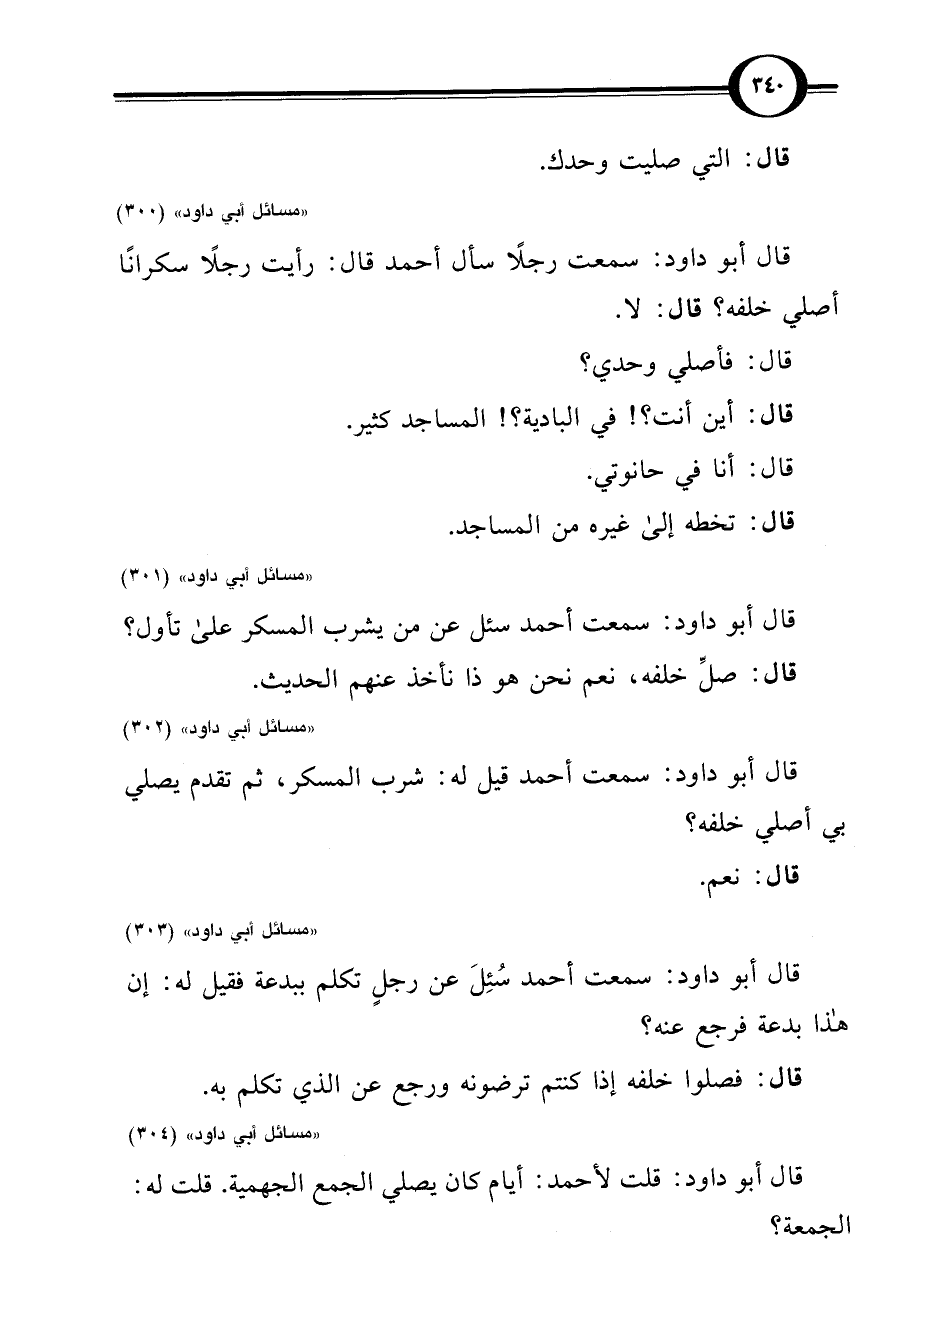 ٣٤٠
قال: التي صليت وحدك.
«مسائل أبي داود» (٣٠٠)
قال أبو داود: سمعت رجلًا سأل أحمد قال: رأيت رجلًا سكرانًا
أصلي خلفه؟ قال: لا.
قال: فأصلي وحدي؟
قال: أين أنت؟! في البادية؟! المساجد كثير.
قال: أنا في حانوتي.
قال: تخطه إلىٰ غيره من المساجد.
«مسائل أبي داود» (٣٠١)
قال أبو داود: سمعت أحمد سئل عن من يشرب المسكر علىٰ تأول؟
قال: صلِّ خلفه، نعم نحن هو ذا نأخذ عنهم الحديث.
«مسائل أبي داود» (٣٠٢)
قال أبو داود: سمعت أحمد قيل له: شرب المسكر، ثم تقدم يصلي
بي أصلي خلفه؟
قال: نعم.
«مسائل أبي داود» (٣٠٣)
قال أبو داود: سمعت أحمد سُئِلَ عن رجلٍ تكلم ببدعة فقيل له: إن
هٰذا بدعة فرجع عنه؟
قال: فصلوا خلفه إذا كنتم ترضونه ورجع عن الذي تكلم به.
«مسائل أبي داود» (٣٠٤)
قال أبو داود: قلت لأحمد: أيام كان يصلي الجمع الجهمية. قلت له:
الجمعة؟